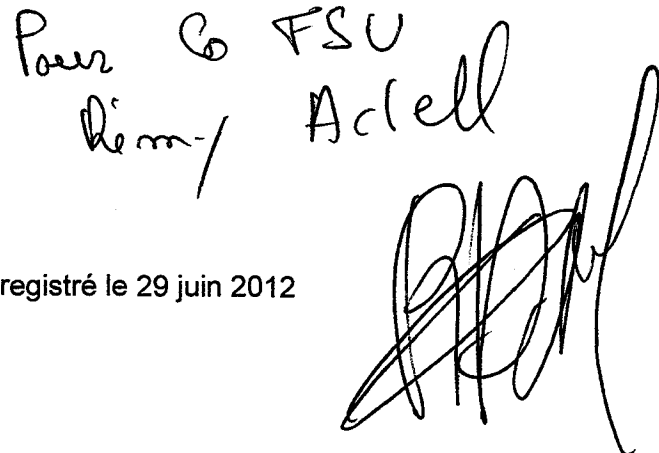 Pour la FSU
Rémy Adell
registré le 29 juin 2012